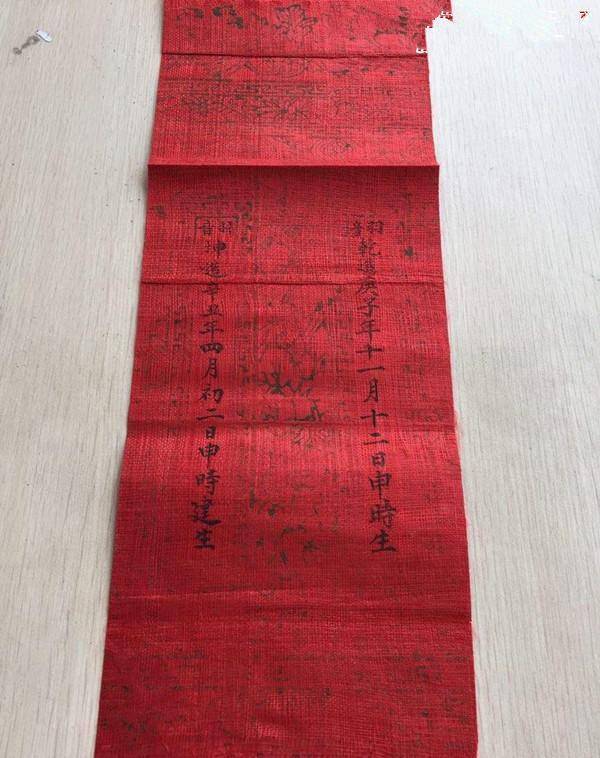 羽音
乾造庚子年十一月十二日申時生
羽音
坤造辛丑年四月初二日申時建生